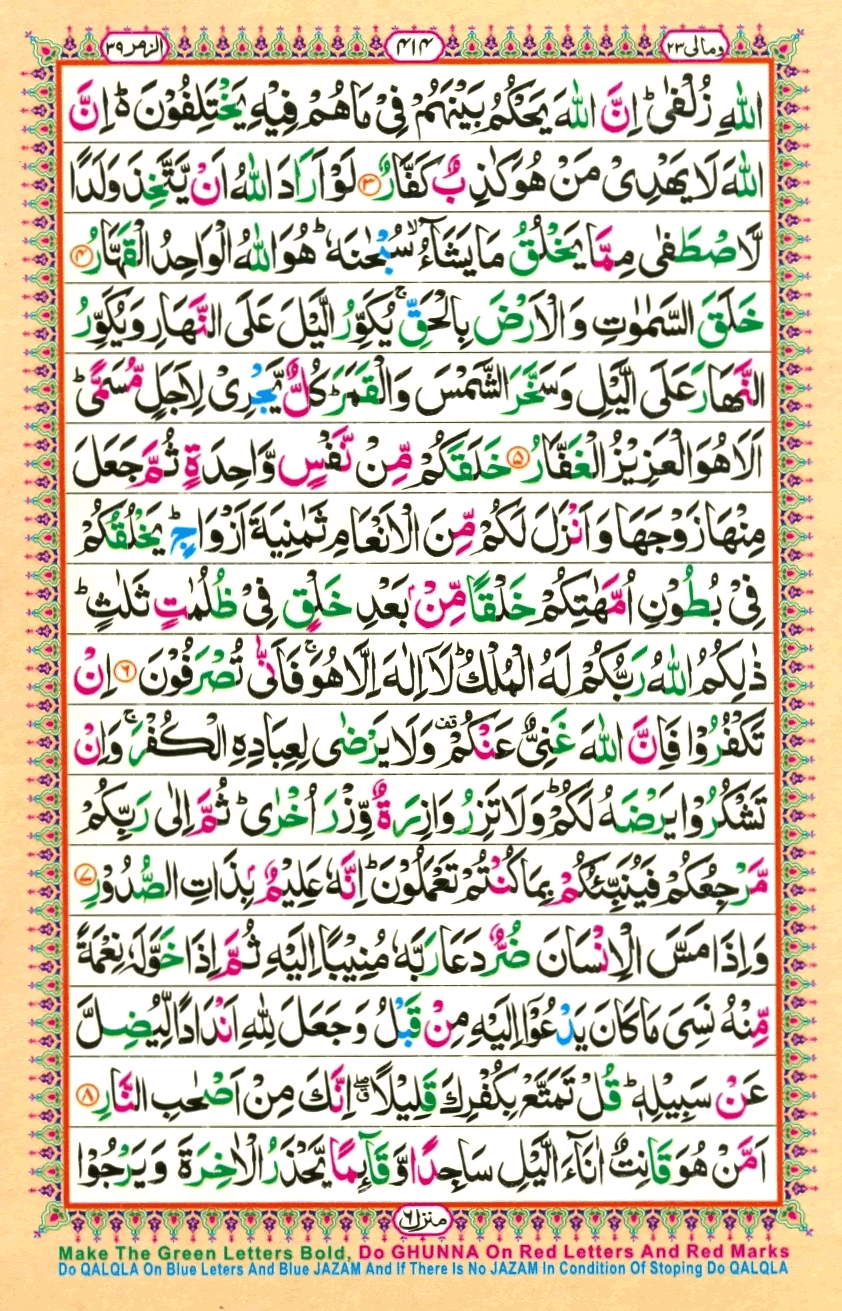 الزمر ٣٩ ٤١٤ ومالی ٢٣
اللّٰهِ زُلْفٰیؕ اِنَّ اللّٰهَ یَحْكُمُ بَیْنَهُمْ فِیْ مَا هُمْ فِیْهِ یَخْتَلِفُوْنَ۬ؕ اِنَّ
اللّٰهَ لَا یَهْدِیْ مَنْ هُوَ كٰذِبٌ كَفَّارٌ ۝۳ لَوْ اَرَادَ اللّٰهُ اَنْ یَّتَّخِذَ وَلَدًا
لَّاصْطَفٰی مِمَّا یَخْلُقُ مَا یَشَآءُۙ سُبْحٰنَهٗؕ هُوَ اللّٰهُ الْوَاحِدُ الْقَهَّارُ ۝۴
خَلَقَ السَّمٰوٰتِ وَ الْاَرْضَ بِالْحَقِّۚ یُكَوِّرُ الَّیْلَ عَلَی النَّهَارِ وَ یُكَوِّرُ
النَّهَارَ عَلَی الَّیْلِ وَ سَخَّرَ الشَّمْسَ وَ الْقَمَرَؕ كُلٌّ یَّجْرِیْ لِاَجَلٍ مُّسَمًّیؕ
اَلَا هُوَ الْعَزِیْزُ الْغَفَّارُ ۝۵ خَلَقَكُمْ مِّنْ نَّفْسٍ وَّاحِدَةٍ ثُمَّ جَعَلَ
مِنْهَا زَوْجَهَا وَ اَنْزَلَ لَكُمْ مِّنَ الْاَنْعَامِ ثَمٰنِیَةَ اَزْوَاجٍؕ یَخْلُقُكُمْ
فِیْ بُطُوْنِ اُمَّهٰتِكُمْ خَلْقًا مِّنْۢ بَعْدِ خَلْقٍ فِیْ ظُلُمٰتٍ ثَلٰثٍؕ
ذٰلِكُمُ اللّٰهُ رَبُّكُمْ لَهُ الْمُلْكُؕ لَاۤ اِلٰهَ اِلَّا هُوَۚ فَاَنّٰی تُصْرَفُوْنَ ۝۶ اِنْ
تَكْفُرُوْا فَاِنَّ اللّٰهَ غَنِیٌّ عَنْكُمْ۫ وَ لَا یَرْضٰی لِعِبَادِهِ الْكُفْرَۚ وَ اِنْ
تَشْكُرُوْا یَرْضَهُ لَكُمْؕ وَ لَا تَزِرُ وَازِرَةٌ وِّزْرَ اُخْرٰیؕ ثُمَّ اِلٰی رَبِّكُمْ
مَّرْجِعُكُمْ فَیُنَبِّئُكُمْ بِمَا كُنْتُمْ تَعْمَلُوْنَؕ اِنَّهٗ عَلِیْمٌۢ بِذَاتِ الصُّدُوْرِ ۝۷
وَ اِذَا مَسَّ الْاِنْسَانَ ضُرٌّ دَعَا رَبَّهٗ مُنِیْبًا اِلَیْهِ ثُمَّ اِذَا خَوَّلَهٗ نِعْمَةً
مِّنْهُ نَسِیَ مَا كَانَ یَدْعُوْۤا اِلَیْهِ مِنْ قَبْلُ وَ جَعَلَ لِلّٰهِ اَنْدَادًا لِّیُضِلَّ
عَنْ سَبِیْلِهٖؕ قُلْ تَمَتَّعْ بِكُفْرِكَ قَلِیْلًا ۖۗ اِنَّكَ مِنْ اَصْحٰبِ النَّارِ ۝۸
اَمَّنْ هُوَ قَانِتٌ اٰنَآءَ الَّیْلِ سَاجِدًا وَّ قَآىِٕمًا یَّحْذَرُ الْاٰخِرَةَ وَ یَرْجُوْا
منزل ٦
Make The Green Letters Bold, Do GHUNNA On Red Letters And Red Marks
Do QALQLA On Blue Leters And Blue JAZAM And If There Is No JAZAM In Condition Of Stoping Do QALQLA